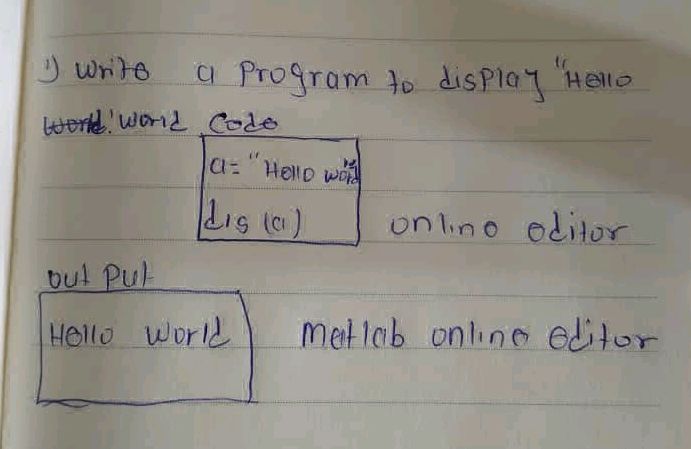 1) write a program to display "Hello
world! world code
a= "Hello world"
dis (a) online editor
out put
Hello world matlab online editor